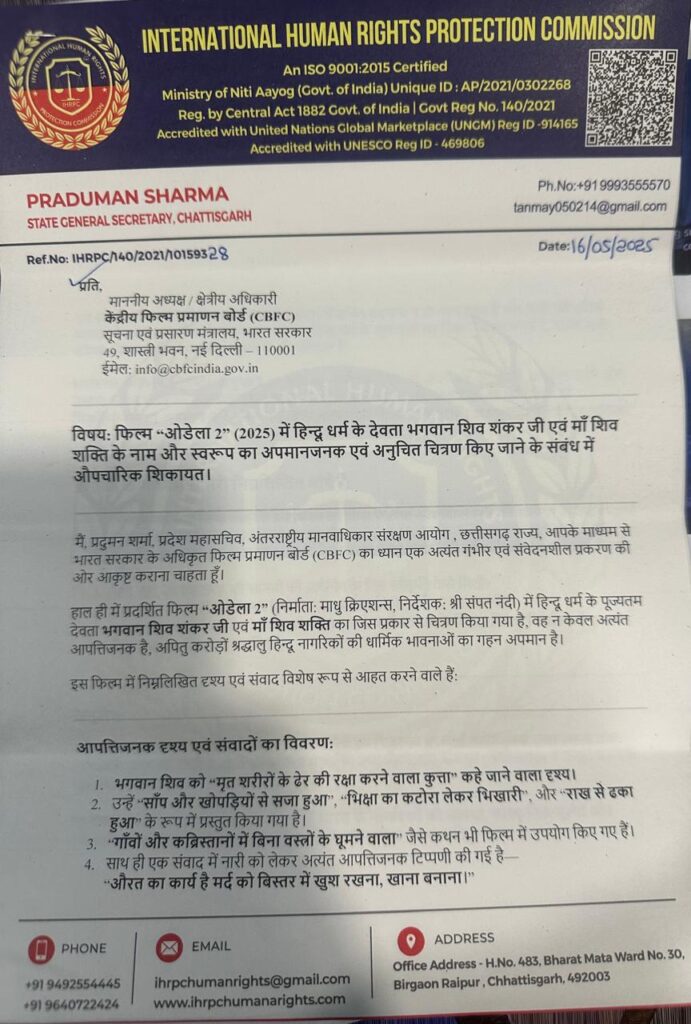 INTERNATIONAL HUMAN RIGHTS PROTECTION COMMISSION
An ISO 9001:2015 Certified
Ministry of Niti Aayog (Govt. of India) Unique ID : AP/2021/0302268
Reg. by Central Act 1882 Govt. of India | Govt Reg No. 140/2021
Accredited with United Nations Global Marketplace (UNGM) Reg ID -914165
Accredited with UNESCO Reg ID - 469806
INTERNATIONAL HUMAN RIGHTS
IHRPC
PROTECTION COMMISSION
PRADUMAN SHARMA
STATE GENERAL SECRETARY, CHATTISGARH
Ph.No:+91 9993555570
tanmay050214@gmail.com
Ref.No: IHRPC/140/2021/10159328
Date:16/05/2025
प्रति,
माननीय अध्यक्ष / क्षेत्रीय अधिकारी
केंद्रीय फिल्म प्रमाणन बोर्ड (CBFC)
सूचना एवं प्रसारण मंत्रालय, भारत सरकार
49, शास्त्री भवन, नई दिल्ली – 110001
ईमेल: info@cbfcindia.gov.in
विषय: फिल्म “ओडेला 2” (2025) में हिन्दू धर्म के देवता भगवान शिव शंकर जी एवं माँ शिव
शक्ति के नाम और स्वरूप का अपमानजनक एवं अनुचित चित्रण किए जाने के संबंध में
औपचारिक शिकायत।
मैं, प्रदुमन शर्मा, प्रदेश महासचिव, अंतरराष्ट्रीय मानवाधिकार संरक्षण आयोग , छत्तीसगढ़ राज्य, आपके माध्यम से
भारत सरकार के अधिकृत फिल्म प्रमाणन बोर्ड (CBFC) का ध्यान एक अत्यंत गंभीर एवं संवेदनशील प्रकरण की
ओर आकृष्ट कराना चाहता हूँ।
हाल ही में प्रदर्शित फिल्म “ओडेला 2” (निर्माता: माधु क्रिएशन्स, निर्देशक: श्री संपत नंदी) में हिन्दू धर्म के पूज्यतम
देवता भगवान शिव शंकर जी एवं माँ शिव शक्ति का जिस प्रकार से चित्रण किया गया है, वह न केवल अत्यंत
आपत्तिजनक है, अपितु करोड़ों श्रद्धालु हिन्दू नागरिकों की धार्मिक भावनाओं का गहन अपमान है।
इस फिल्म में निम्नलिखित दृश्य एवं संवाद विशेष रूप से आहत करने वाले हैं:
आपत्तिजनक दृश्य एवं संवादों का विवरण:
1. भगवान शिव को “मृत शरीरों के ढेर की रक्षा करने वाला कुत्ता” कहे जाने वाला दृश्य।
2. उन्हें “साँप और खोपड़ियों से सजा हुआ”, “भिक्षा का कटोरा लेकर भिखारी”, और “राख से ढका
हुआ” के रूप में प्रस्तुत किया गया है।
3. “गाँवों और कब्रिस्तानों में बिना वस्त्रों के घूमने वाला” जैसे कथन भी फिल्म में उपयोग किए गए हैं।
4. साथ ही एक संवाद में नारी को लेकर अत्यंत आपत्तिजनक टिप्पणी की गई है—
“औरत का कार्य है मर्द को बिस्तर में खुश रखना, खाना बनाना।”
PHONE
+91 9492554445
+91 9640722424
EMAIL
ihrpchumanrights@gmail.com
www.ihrpchumanarights.com
ADDRESS
Office Address - H.No. 483, Bharat Mata Ward No. 30,
Birgaon Raipur , Chhattisgarh, 492003